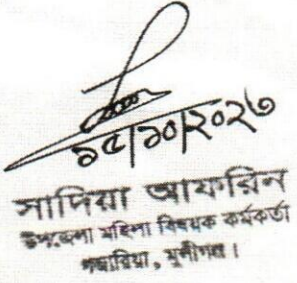 ১৫/১০/২০২৩
সাদিয়া আফরিন
উপজেলা মহিলা বিষয়ক কর্মকর্তা
গজারিয়া, মুন্সীগঞ্জ।